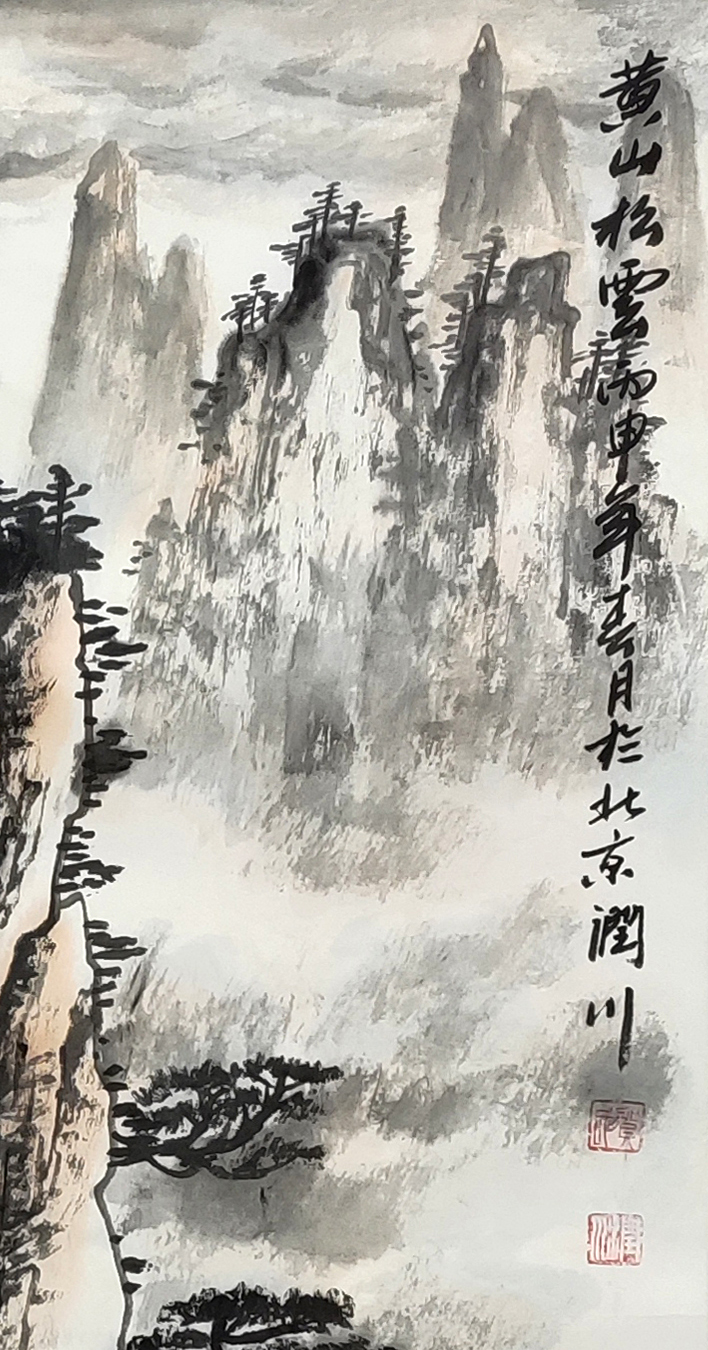 黄山松雲丙申年春月於北京潤川